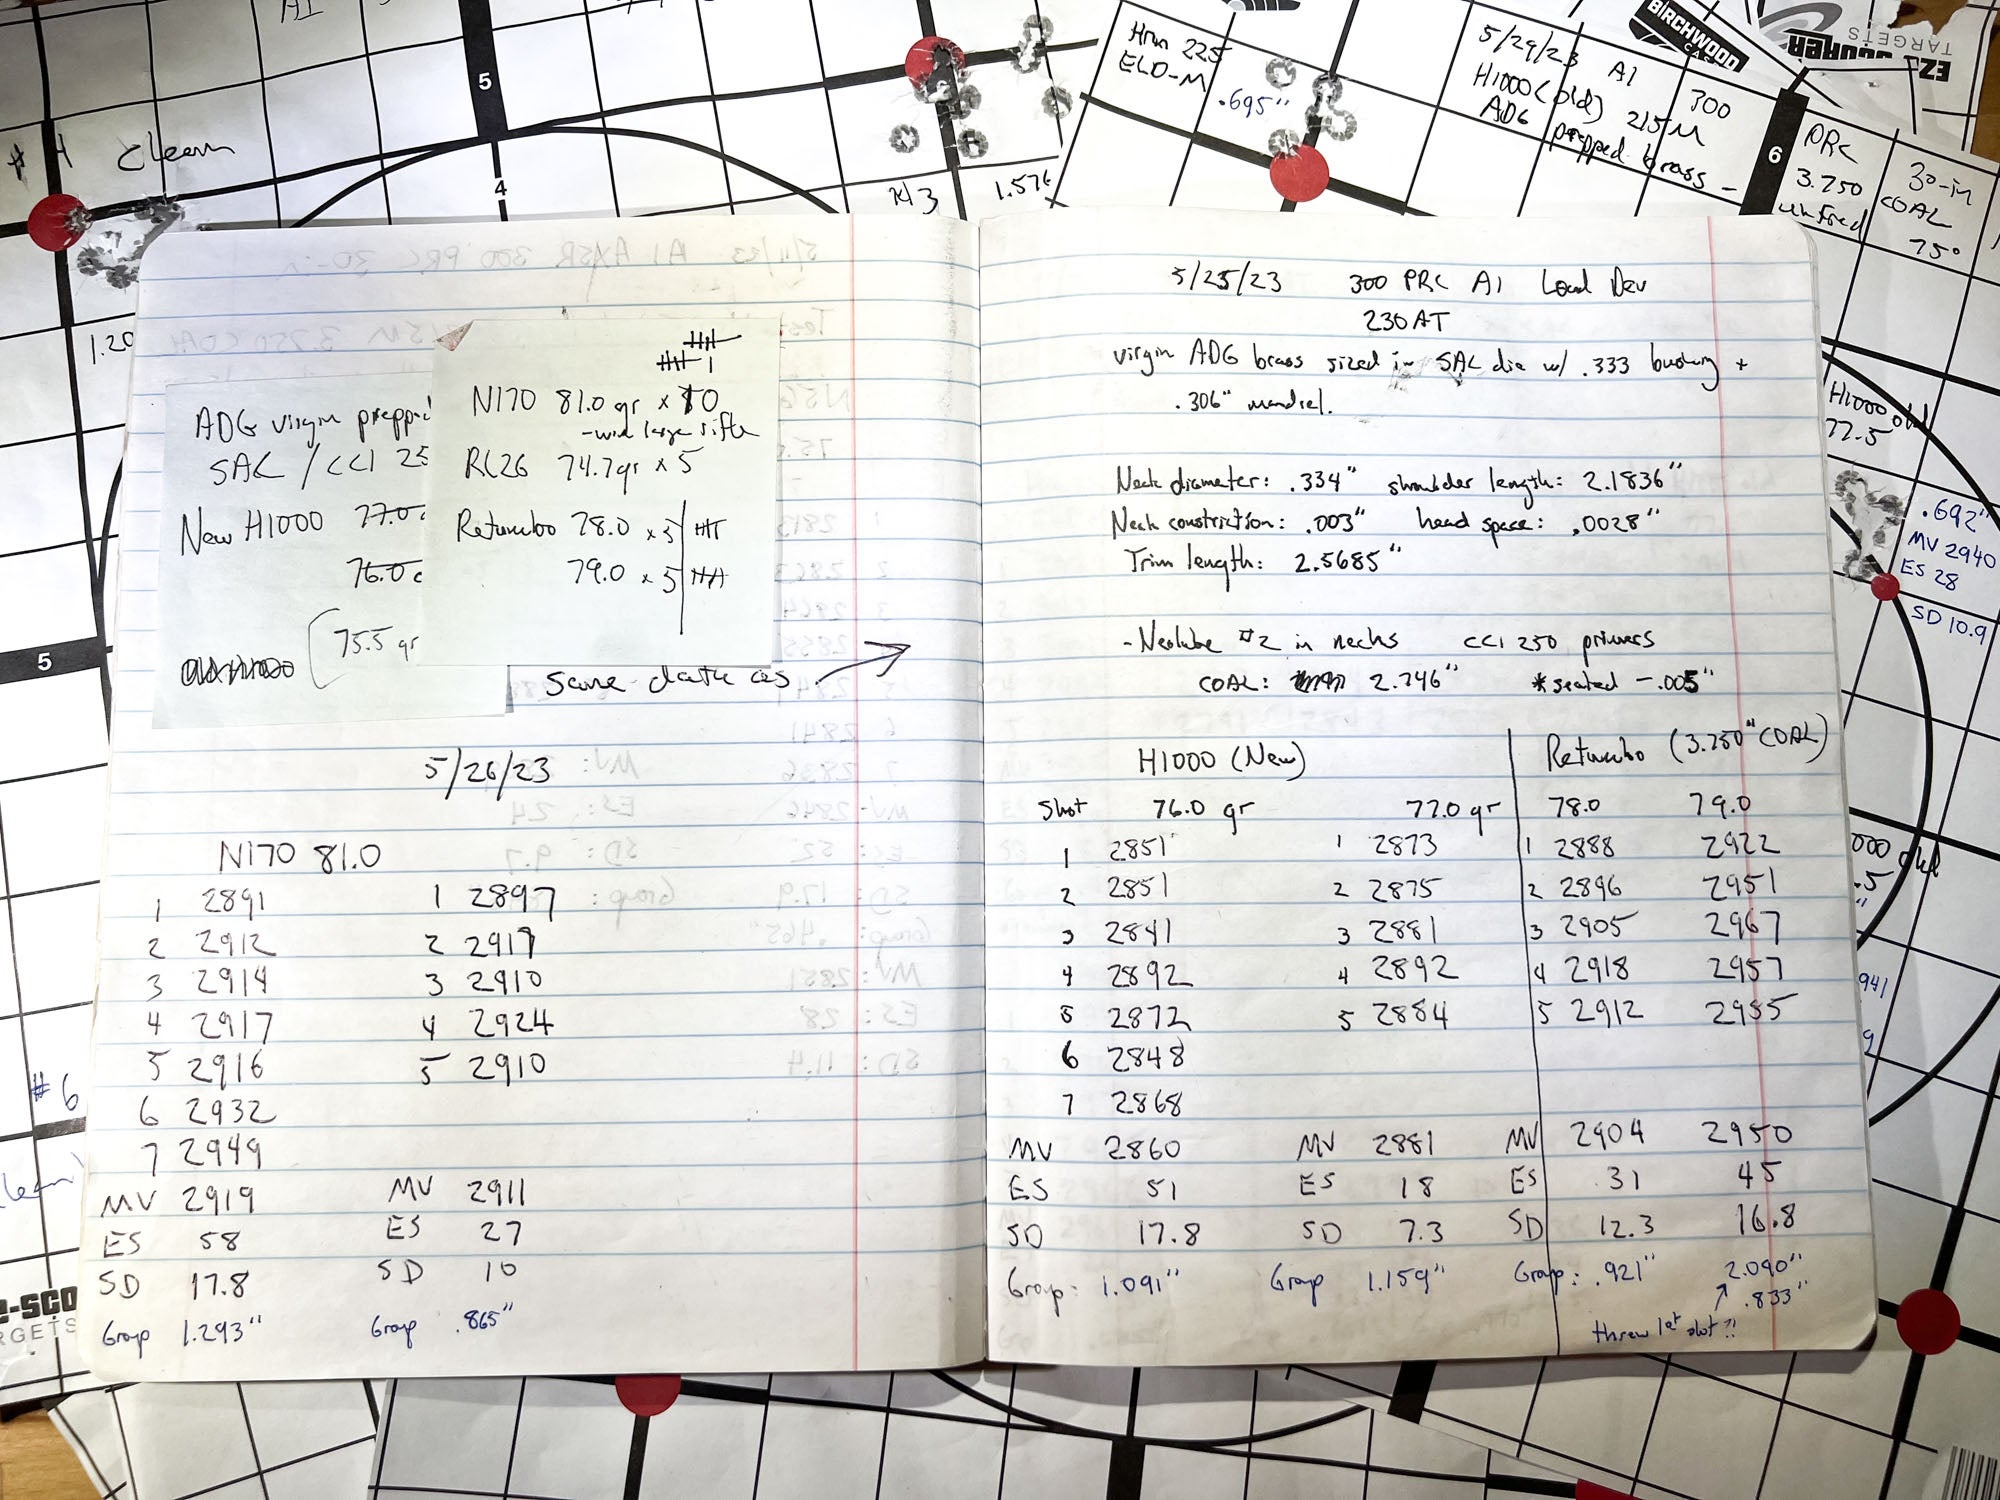 # 4 clean
5
4
#3 1.576
1.20
Hrn 225
ELD-M
.695"
5/29/23 AI 300
H1000 (old) 215M
ADG prepped brass -
BIRCHWOOD
CASEY
EZE-SCORER
TARGETS
6
PRC
3.750
unfired
30-in
COAL
75°
ADG virgin prepped
SAC / CCI 25
New H1000 77.0
76.0
75.5 gr
N170 81.0 gr x 10
RL26 74.7gr x 5
Retumbo 78.0 x 5
79.0 x 5
same data as
5
5/26/23
N170 81.0
1 2891 1 2897
2 2912 2 2917
3 2914 3 2910
4 2917 4 2924
5 2916 5 2910
6 2932
7 2949
MV 2919 MV 2911
ES 58 ES 27
SD 17.8 SD 10
Group 1.293" Group .865"
# 6
TARGETS
5/25/23 300 PRC AI Load Dev
230 AT
virgin ADG brass sized in SAC die w/ .333 bushing +
.306" mandrel.
Neck diameter: .334" shoulder length: 2.1836"
Neck constriction: .003" head space: .0028"
Trim length: 2.5685"
- Neolube #2 in necks CCI 250 primers
COAL: 2.746" *seated -.005"
H1000 (New) Retumbo (3.750" COAL)
Shot 76.0 gr 77.0 gr 78.0 79.0
1 2851 1 2873 1 2888 2922
2 2851 2 2875 2 2896 2951
3 2841 3 2881 3 2905 2967
4 2892 4 2892 4 2918 2957
5 2872 5 2884 5 2912 2955
6 2848
7 2868
MV 2860 MV 2881 MV 2904 2950
ES 51 ES 18 ES 31 45
SD 17.8 SD 7.3 SD 12.3 16.8
Group: 1.091" Group 1.159" Group: .921" 2.090"
.833"
threw 1st shot?!
H1000 old
77.5
.692"
MV 2940
ES 28
SD 10.9
941
9